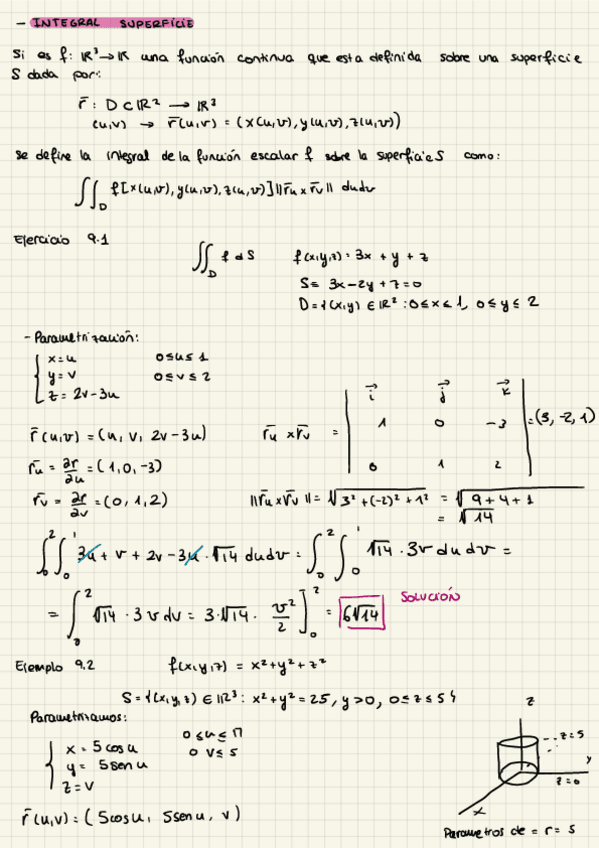 - INTEGRAL SUPERFICIE
Si es f: IR³ → IR una función continua que esta definida sobre una superficie
S dada por:
r̄ : D ⊂ IR² → IR³
(u,v) → r̄(u,v) = (x(u,v), y(u,v), z(u,v))
se define la integral de la función escalar f sobre la superficie S como:
∬_D f[x(u,v), y(u,v), z(u,v)] ||r̄u x r̄v|| dudv
Ejercicio 9.1 ∬_D f dS f(x,y,z) = 3x + y + z
S = 3x - 2y + z = 0
D = {(x,y) ∈ IR² : 0 ≤ x ≤ 1, 0 ≤ y ≤ 2
- Parametrización:
x = u 0 ≤ u ≤ 1
y = v 0 ≤ v ≤ 2
z = 2v - 3u
r̄(u,v) = (u, v, 2v - 3u)
r̄u = ∂r/∂u = (1, 0, -3)
r̄v = ∂r/∂v = (0, 1, 2)
r̄u x r̄v = | i j k |
| 1 0 -3 | = (3, -2, 1)
| 0 1 2 |
||r̄u x r̄v|| = √(3² + (-2)² + 1²) = √(9 + 4 + 1)
= √14
∫₀² ∫₀¹ 3u + v + 2v - 3u · √14 dudv = ∫₀² ∫₀¹ √14 · 3v dudv =
= ∫₀² √14 · 3v dv = 3 · √14 · v²/2 ]₀² = 6√14 SOLUCIÓN
Ejemplo 9.2 f(x,y,z) = x² + y² + z²
S = {(x,y,z) ∈ IR³ : x² + y² = 25, y > 0, 0 ≤ z ≤ 5}
Parametrizamos:
x = 5 cos u 0 ≤ u ≤ π
y = 5 sen u 0 v ≤ 5
z = v
r̄(u,v) = (5cosu, 5senu, v)
z
z=5
y
z=0
x
Parametros de = r = 5